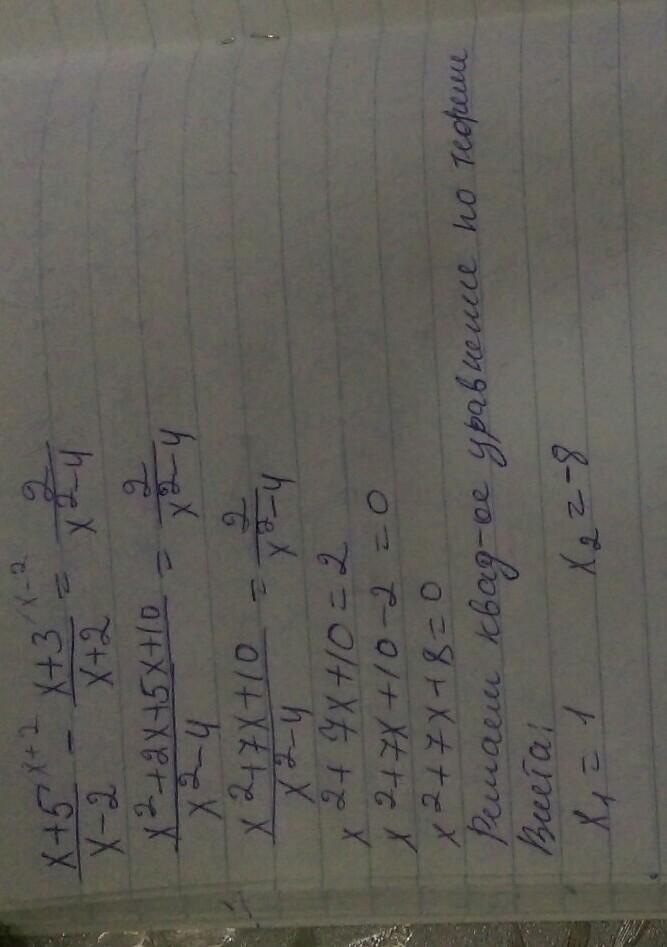 x+5/x-2 ^x+2 - x+3/x+2 ^x-2 = 2/x²-4
x²+2x+5x+10/x²-4 = 2/x²-4
x²+7x+10/x²-4 = 2/x²-4
x²+7x+10=2
x²+7x+10-2=0
x²+7x+8=0
Решаем квад-ое уравнение по теореме
Виета;
x₁=1 x₂=-8